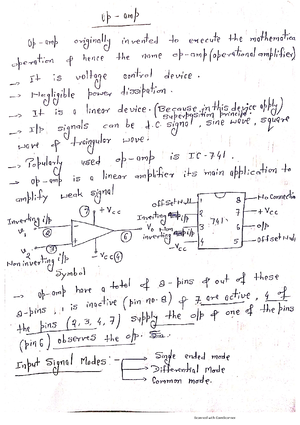 Op-amp
Op-amp originally invented to execute the mathematical
operation & hence the name op-amp (operational amplifier)
→ It is voltage control device.
→ Negligible power dissipation.
→ It is a linear device. (Because in this device apply)
superposition principle.
→ I/p signals can be d.c signal, sine wave, square
wave & triangular wave.
→ Popularly used op-amp is IC-741.
→ Op-amp is a linear amplifier its main application to
amplify weak signal
Inverting i/p
V1
2
7
+Vcc
6
Vo
V2
3
-Vcc(4)
Non inverting i/p
Symbol
Offset Null
Inverting i/p
Non inverting i/p
-Vcc
1
2
3
4
741
8
7
6
5
No Connection
+Vcc
o/p
Offset Null
→ Op-amp have a total of 8-pins & out of those
8-pins, 1 is inactive (pin no. 8) & 7 are active, 4 of
the pins (2,3,4,7) supply the o/p one of the pins
(pin 6) observes the o/p.
Input Signal Modes:-
Single ended mode
Differential Mode
Common mode.